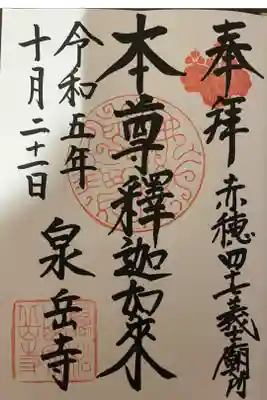 奉拝
赤穂四十七義士廟所
本尊釋迦如来
令和五年
十月二十一日
泉岳寺